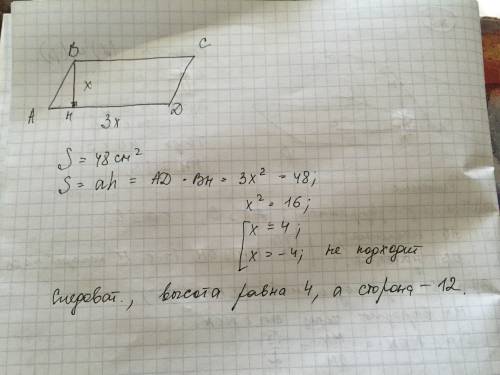 B C
x
A H D
3x
S = 48 см²
S = ah = AD · BH = 3x² = 48;
x² = 16;
[ x = 4;
x = -4; не подходит
Следоват., высота равна 4, а сторона - 12.